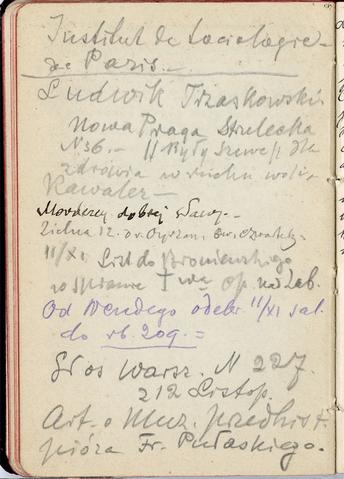 Institut de Sociologie
de Paris.
Ludwik Trzaskowski
Nowa Praga Strzelecka
N 36. — // Były szewc // dla
zdrowia w ruchu
Kawaler —
dobrej sławy. —
Zielna 12.
11/XI List do Broniewskiego
w sprawie
Od Wendego odebr. 11/XI sal.
do rb. 209. =
Głos Warsz. N 227.
212 Listop.
Art. o Muz. przedhist.
pióra Fr. Pułaskiego.